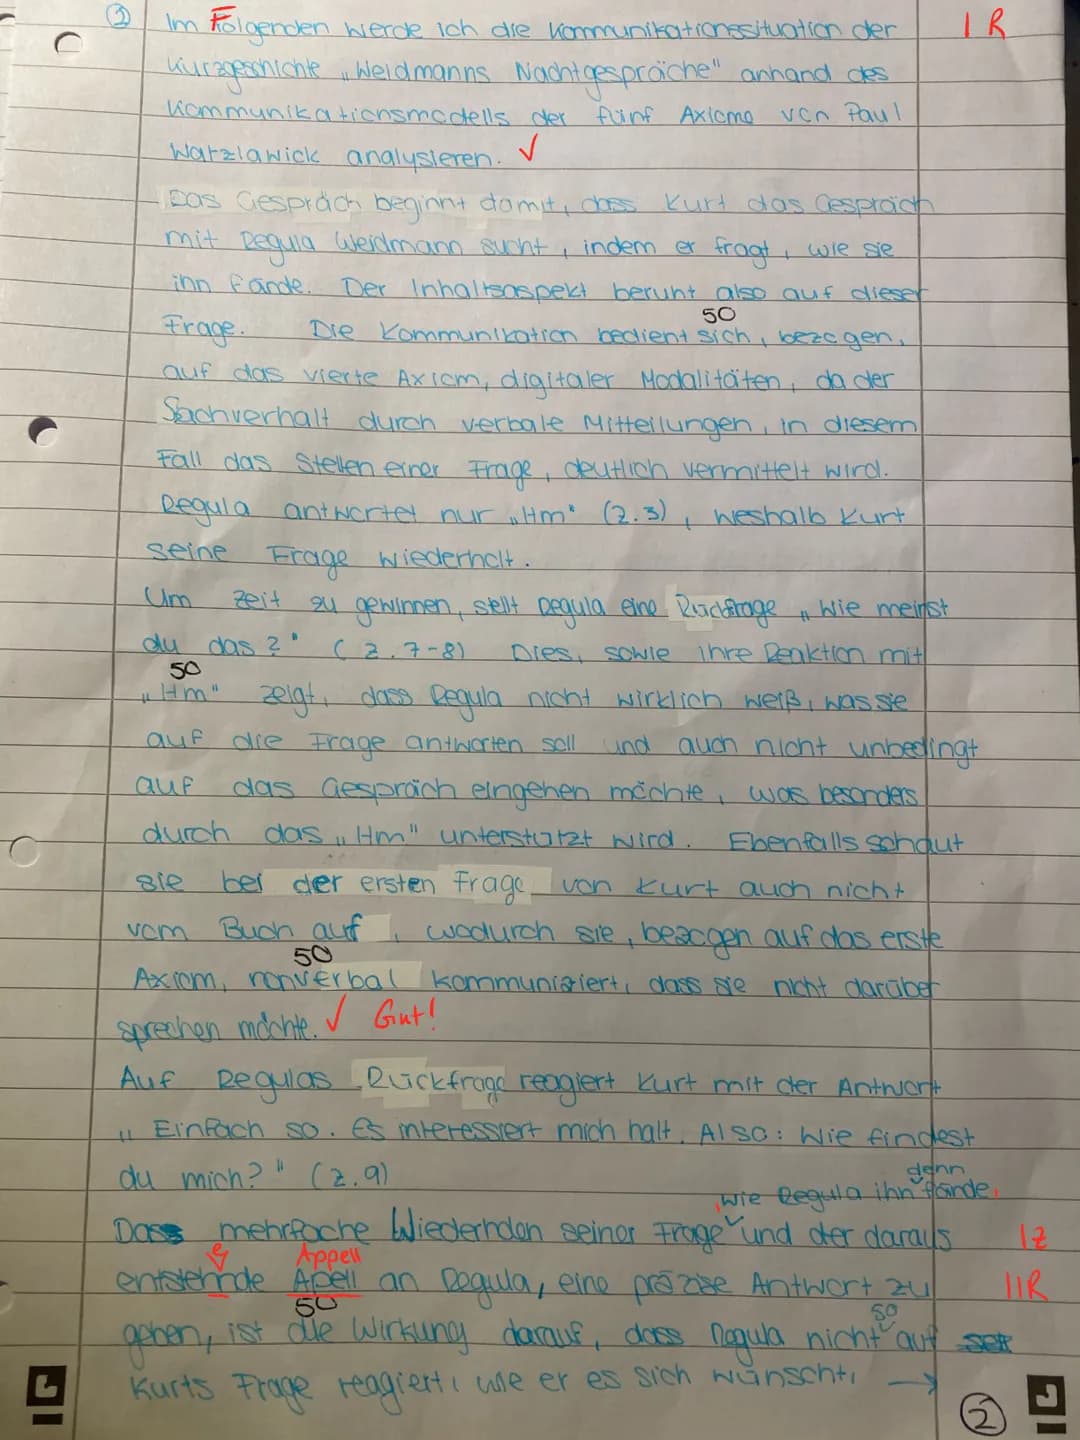 ② Im Folgenden werde ich die Kommunikationssituation der I R
Kurzgeschichte „Weidmanns Nachtgespräche" anhand des
Kommunikationsmodells der fünf Axiome von Paul
Watzlawick analysieren. ✓
Das Gespräch beginnt damit, dass Kurt das Gespräch
mit Regula Weidmann sucht, indem er fragt, wie sie
ihn fände. Der Inhaltsaspekt beruht also auf dieser
50
Frage. Die Kommunikation bedient sich, bezogen,
auf das vierte Axiom, digitaler Modalitäten, da der
Sachverhalt durch verbale Mitteilungen, in diesem
Fall das Stellen einer Frage, deutlich vermittelt wird.
Regula antwortet nur „Hm" (Z.3), weshalb Kurt
seine Frage wiederholt.
Um Zeit zu gewinnen, stellt Regula eine Rückfrage „Wie meinst
du das?" (Z.7-8) Dies, sowie ihre Reaktion mit
50
„Hm" zeigt, dass Regula nicht wirklich weiß, was sie
auf die Frage antworten soll und auch nicht unbedingt
auf das Gespräch eingehen möchte, was besonders
durch das „Hm" unterstützt wird. Ebenfalls schaut
sie bei der ersten Frage von Kurt auch nicht
vom Buch auf, wodurch sie, bezogen auf das erste
50
Axiom, nonverbal kommuniziert, dass sie nicht darüber
sprechen möchte. ✓ Gut!
Auf Regulas Rückfrage reagiert Kurt mit der Antwort
„Einfach so. Es interessiert mich halt. Also: Wie findest
du mich?" (Z.9)
denn
, wie Regula ihn fände,
Das mehrfache Wiederholen seiner Frage und der daraus I Z
Appell
entstehnde Apell an Regula, eine präzise Antwort zu II R
50
so
geben, ist die Wirkung darauf, dass Regula nicht auf
Kurts Frage reagiert, wie er es sich wünscht, →
②